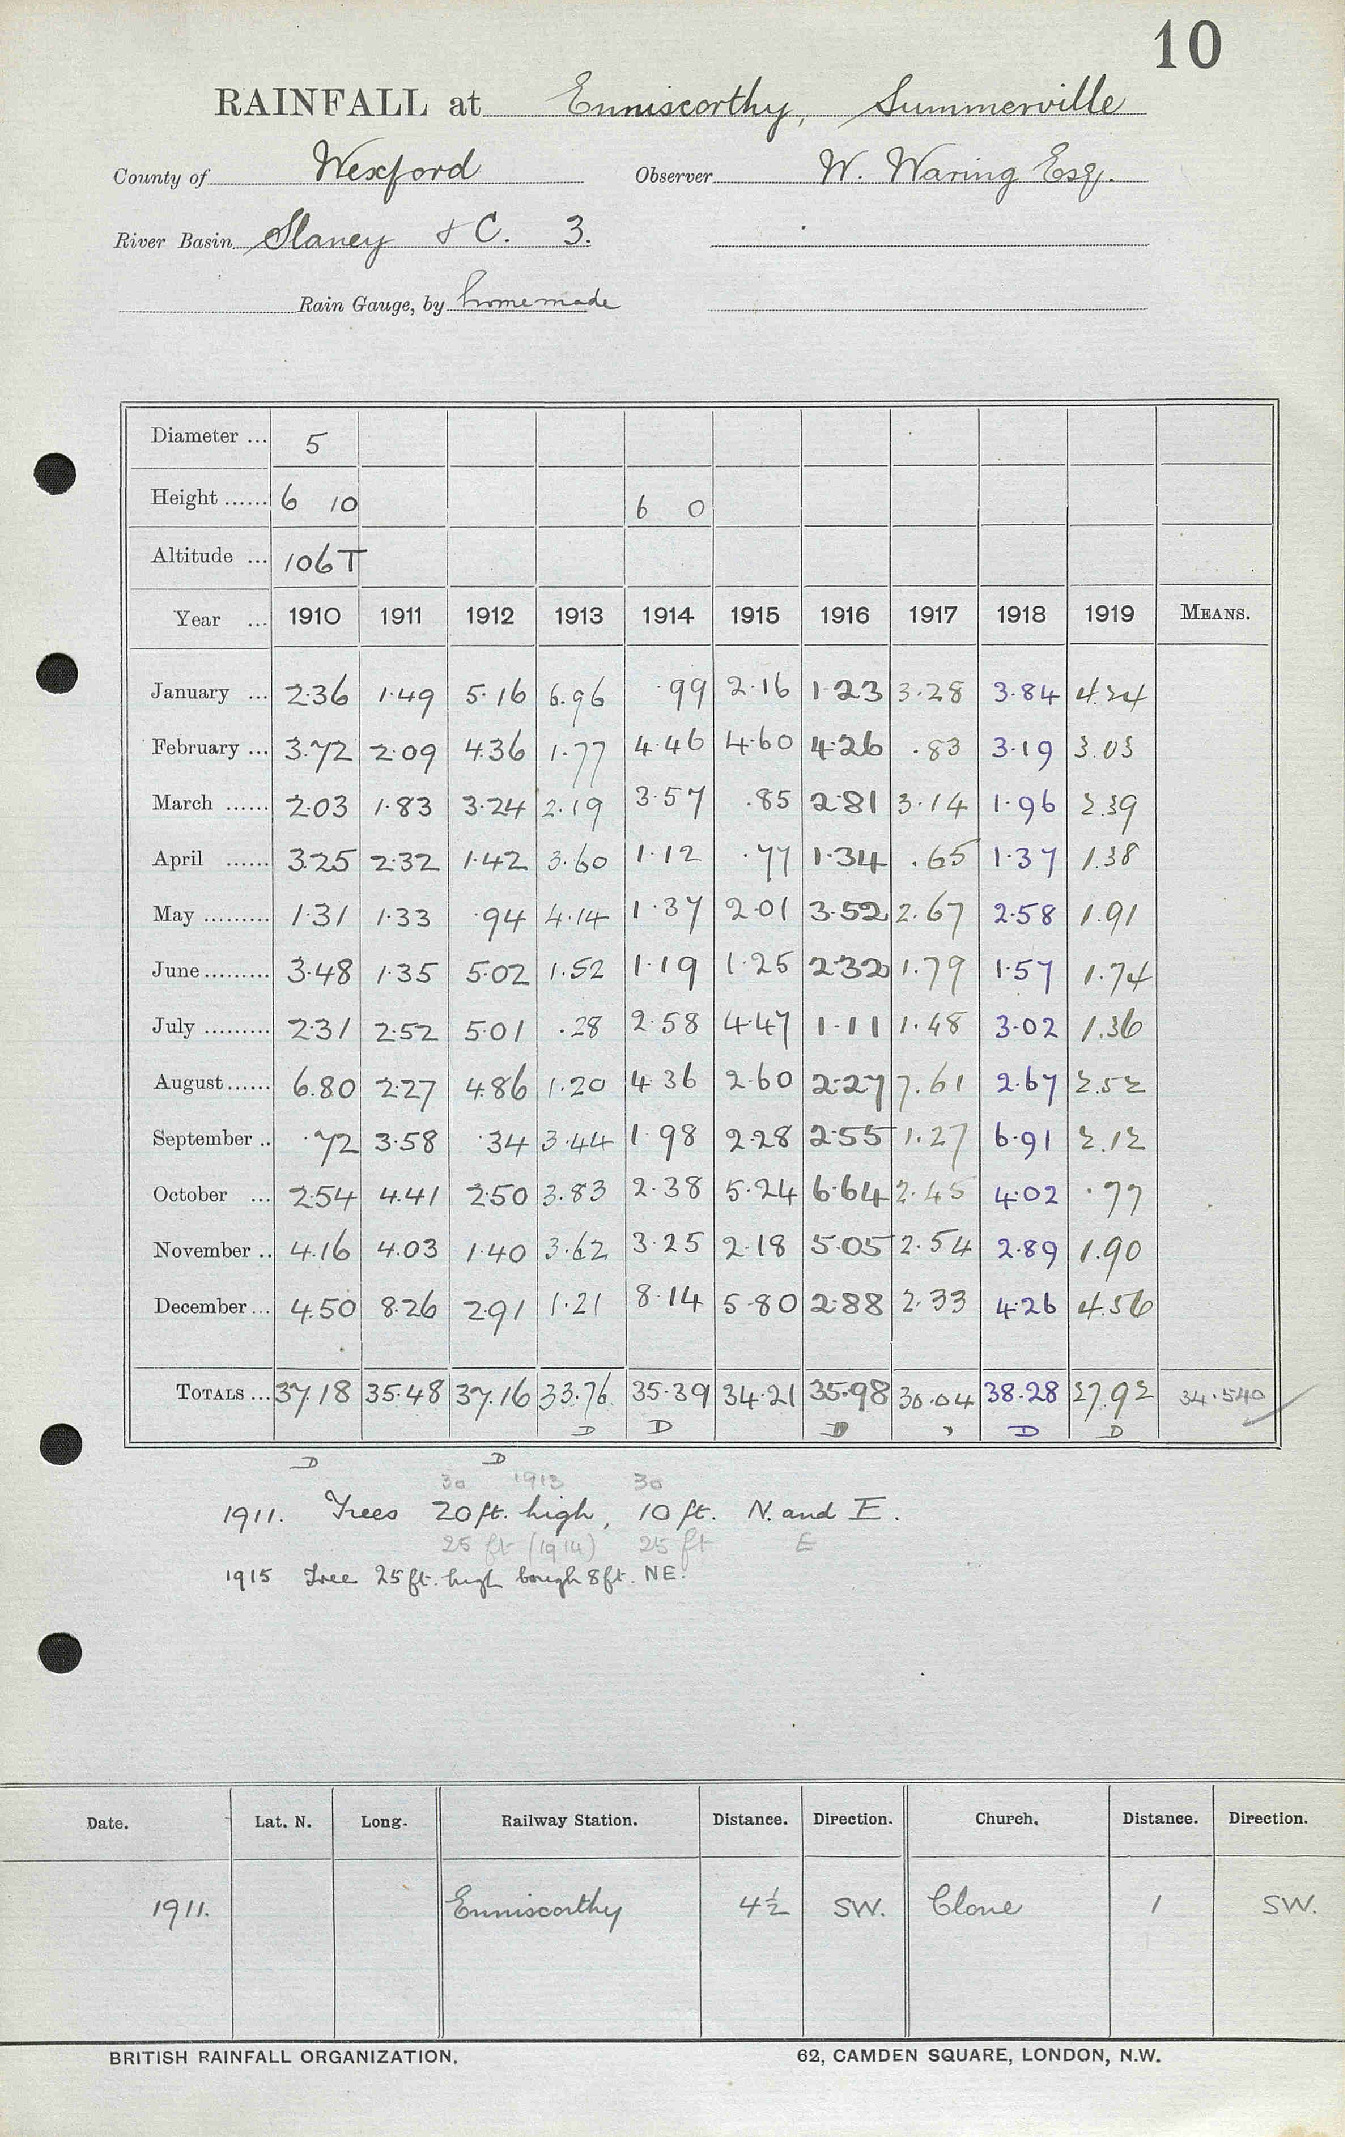 10
RAINFALL at Enniscorthy, Summerville
County of Wexford Observer W. Waring Esq.
River Basin Slaney & C. 3.
Rain Gauge, by homemade
Diameter ... 5
Height ...... 6 10 6 0
Altitude ... 106T
Year ... 1910 1911 1912 1913 1914 1915 1916 1917 1918 1919 MEANS.
January ... 2.36 1.49 5.16 6.96 .99 2.16 1.23 3.28 3.84 4.24
February ... 3.72 2.09 4.36 1.77 4.46 4.60 4.26 .83 3.19 3.03
March ...... 2.03 1.83 3.24 2.19 3.57 .85 2.81 3.14 1.96 2.39
April ...... 3.25 2.32 1.42 3.60 1.12 .77 1.34 .65 1.37 1.38
May ......... 1.31 1.33 .94 4.14 1.37 2.01 3.52 2.67 2.58 1.91
June ......... 3.48 1.35 5.02 1.52 1.19 1.25 2.32 1.79 1.57 1.74
July ......... 2.31 2.52 5.01 .28 2.58 4.47 1.11 1.48 3.02 1.36
August ...... 6.80 2.27 4.86 1.20 4.36 2.60 2.27 7.61 2.67 2.52
September .. .72 3.58 .34 3.44 1.98 2.28 2.55 1.27 6.91 2.12
October ... 2.54 4.41 2.50 3.83 2.38 5.24 6.64 2.45 4.02 .77
November .. 4.16 4.03 1.40 3.62 3.25 2.18 5.05 2.54 2.89 1.90
December ... 4.50 8.26 2.91 1.21 8.14 5.80 2.88 2.33 4.26 4.56
TOTALS ... 37.18 35.48 37.16 33.76 35.39 34.21 35.98 30.04 38.28 27.92 34.540
D D D D D
D D
30 1913 30
1911. Trees 20ft. high, 10 ft. N. and E.
25 ft (1914) 25 ft E
1915 Tree 25ft. high bough 8ft. NE.
Date. Lat. N. Long. Railway Station. Distance. Direction. Church. Distance. Direction.
1911. Enniscorthy 4½ SW. Clone 1 SW.
BRITISH RAINFALL ORGANIZATION. 62, CAMDEN SQUARE, LONDON, N.W.